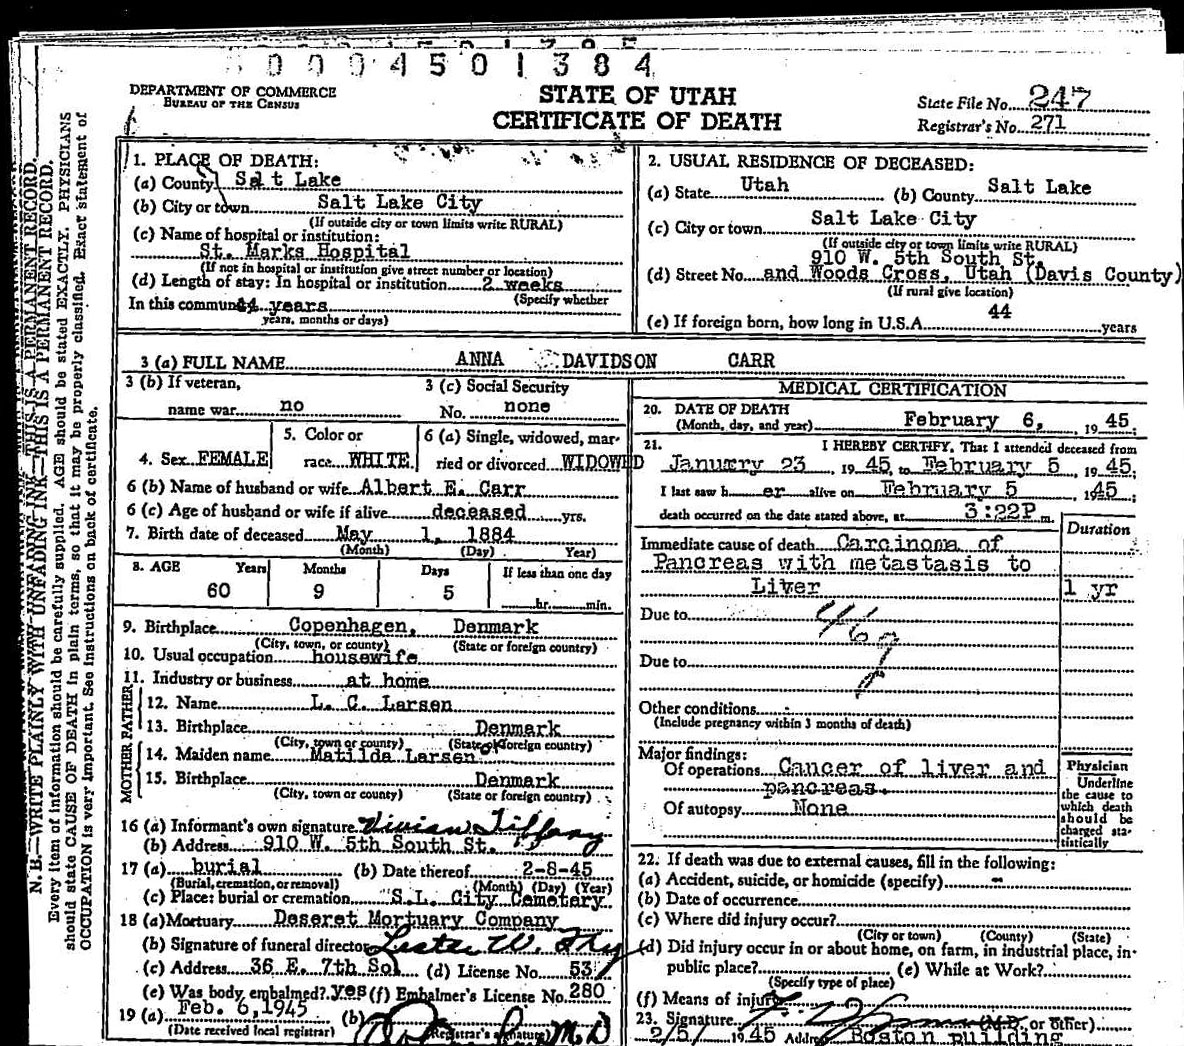 0004501384
DEPARTMENT OF COMMERCE
BUREAU OF THE CENSUS
STATE OF UTAH
CERTIFICATE OF DEATH
State File No. 247
Registrar's No. 271
N. B.—WRITE PLAINLY WITH UNFADING INK—THIS IS A PERMANENT RECORD.
Every item of information should be carefully supplied. AGE should be stated EXACTLY. PHYSICIANS
should state CAUSE OF DEATH in plain terms, so that it may be properly classified. Exact statement of
OCCUPATION is very important. See instructions on back of certificate.
1. PLACE OF DEATH:
(a) County Salt Lake
(b) City or town Salt Lake City
(If outside city or town limits write RURAL)
(c) Name of hospital or institution:
St. Marks Hospital
(If not in hospital or institution give street number or location)
(d) Length of stay: In hospital or institution 2 weeks
(Specify whether
In this community 44 years
years, months or days)
2. USUAL RESIDENCE OF DECEASED:
(a) State Utah (b) County Salt Lake
(c) City or town Salt Lake City
(If outside city or town limits write RURAL)
910 W. 5th South St.
(d) Street No. and Woods Cross, Utah (Davis County)
(If rural give location)
(e) If foreign born, how long in U.S.A. 44 years
3 (a) FULL NAME ANNA DAVIDSON CARR
3 (b) If veteran,
name war no
3 (c) Social Security
No. none
4. Sex FEMALE
5. Color or
race WHITE
6 (a) Single, widowed, mar-
ried or divorced WIDOWED
6 (b) Name of husband or wife Albert E. Carr
6 (c) Age of husband or wife if alive deceased yrs.
7. Birth date of deceased May 1, 1884
(Month) (Day) Year)
8. AGE Years Months Days If less than one day
60 9 5 hr. min.
9. Birthplace Copenhagen, Denmark
(City, town, or county) (State or foreign country)
10. Usual occupation housewife
11. Industry or business at home
FATHER
12. Name L. C. Larsen
13. Birthplace Denmark
(City, town or county) (State or foreign country)
MOTHER
14. Maiden name Matilda Larsen
15. Birthplace Denmark
(City, town or county) (State or foreign country)
16 (a) Informant's own signature Vivian Tiffany
(b) Address 910 W. 5th South St.
17 (a) burial (b) Date thereof 2-8-45
(Burial, cremation, or removal) (Month) (Day) (Year)
(c) Place: burial or cremation S.L. City Cemetery
18 (a) Mortuary Deseret Mortuary Company
(b) Signature of funeral director Lester W.
(c) Address 36 E. 7th So. (d) License No. 53
(e) Was body embalmed? yes (f) Embalmer's License No. 280
19 (a) Feb. 6, 1945 (b) M.D
(Date received local registrar) Registrar's signature)
MEDICAL CERTIFICATION
20. DATE OF DEATH
(Month, day, and year) February 6, 1945;
21. I HEREBY CERTIFY, That I attended deceased from
January 23, 1945, to February 5, 1945;
I last saw her alive on February 5, 1945;
death occurred on the date stated above, at 3:22P m.
Duration
Immediate cause of death Carcinoma of
Pancreas with metastasis to
Liver 1 yr
Due to 46g
Due to
Other conditions
(Include pregnancy within 3 months of death)
Major findings:
Of operations Cancer of liver and
pancreas.
Of autopsy None
Physician
Underline
the cause to
which death
should be
charged sta-
tistically
22. If death was due to external causes, fill in the following:
(a) Accident, suicide, or homicide (specify) -
(b) Date of occurrence
(c) Where did injury occur?
(City or town) (County) (State)
(d) Did injury occur in or about home, on farm, in industrial place, in-
public place? (e) While at Work?
(Specify type of place)
(f) Means of injury
23. Signature (M.D. or other)
2/5/ 1945 Address Boston Building